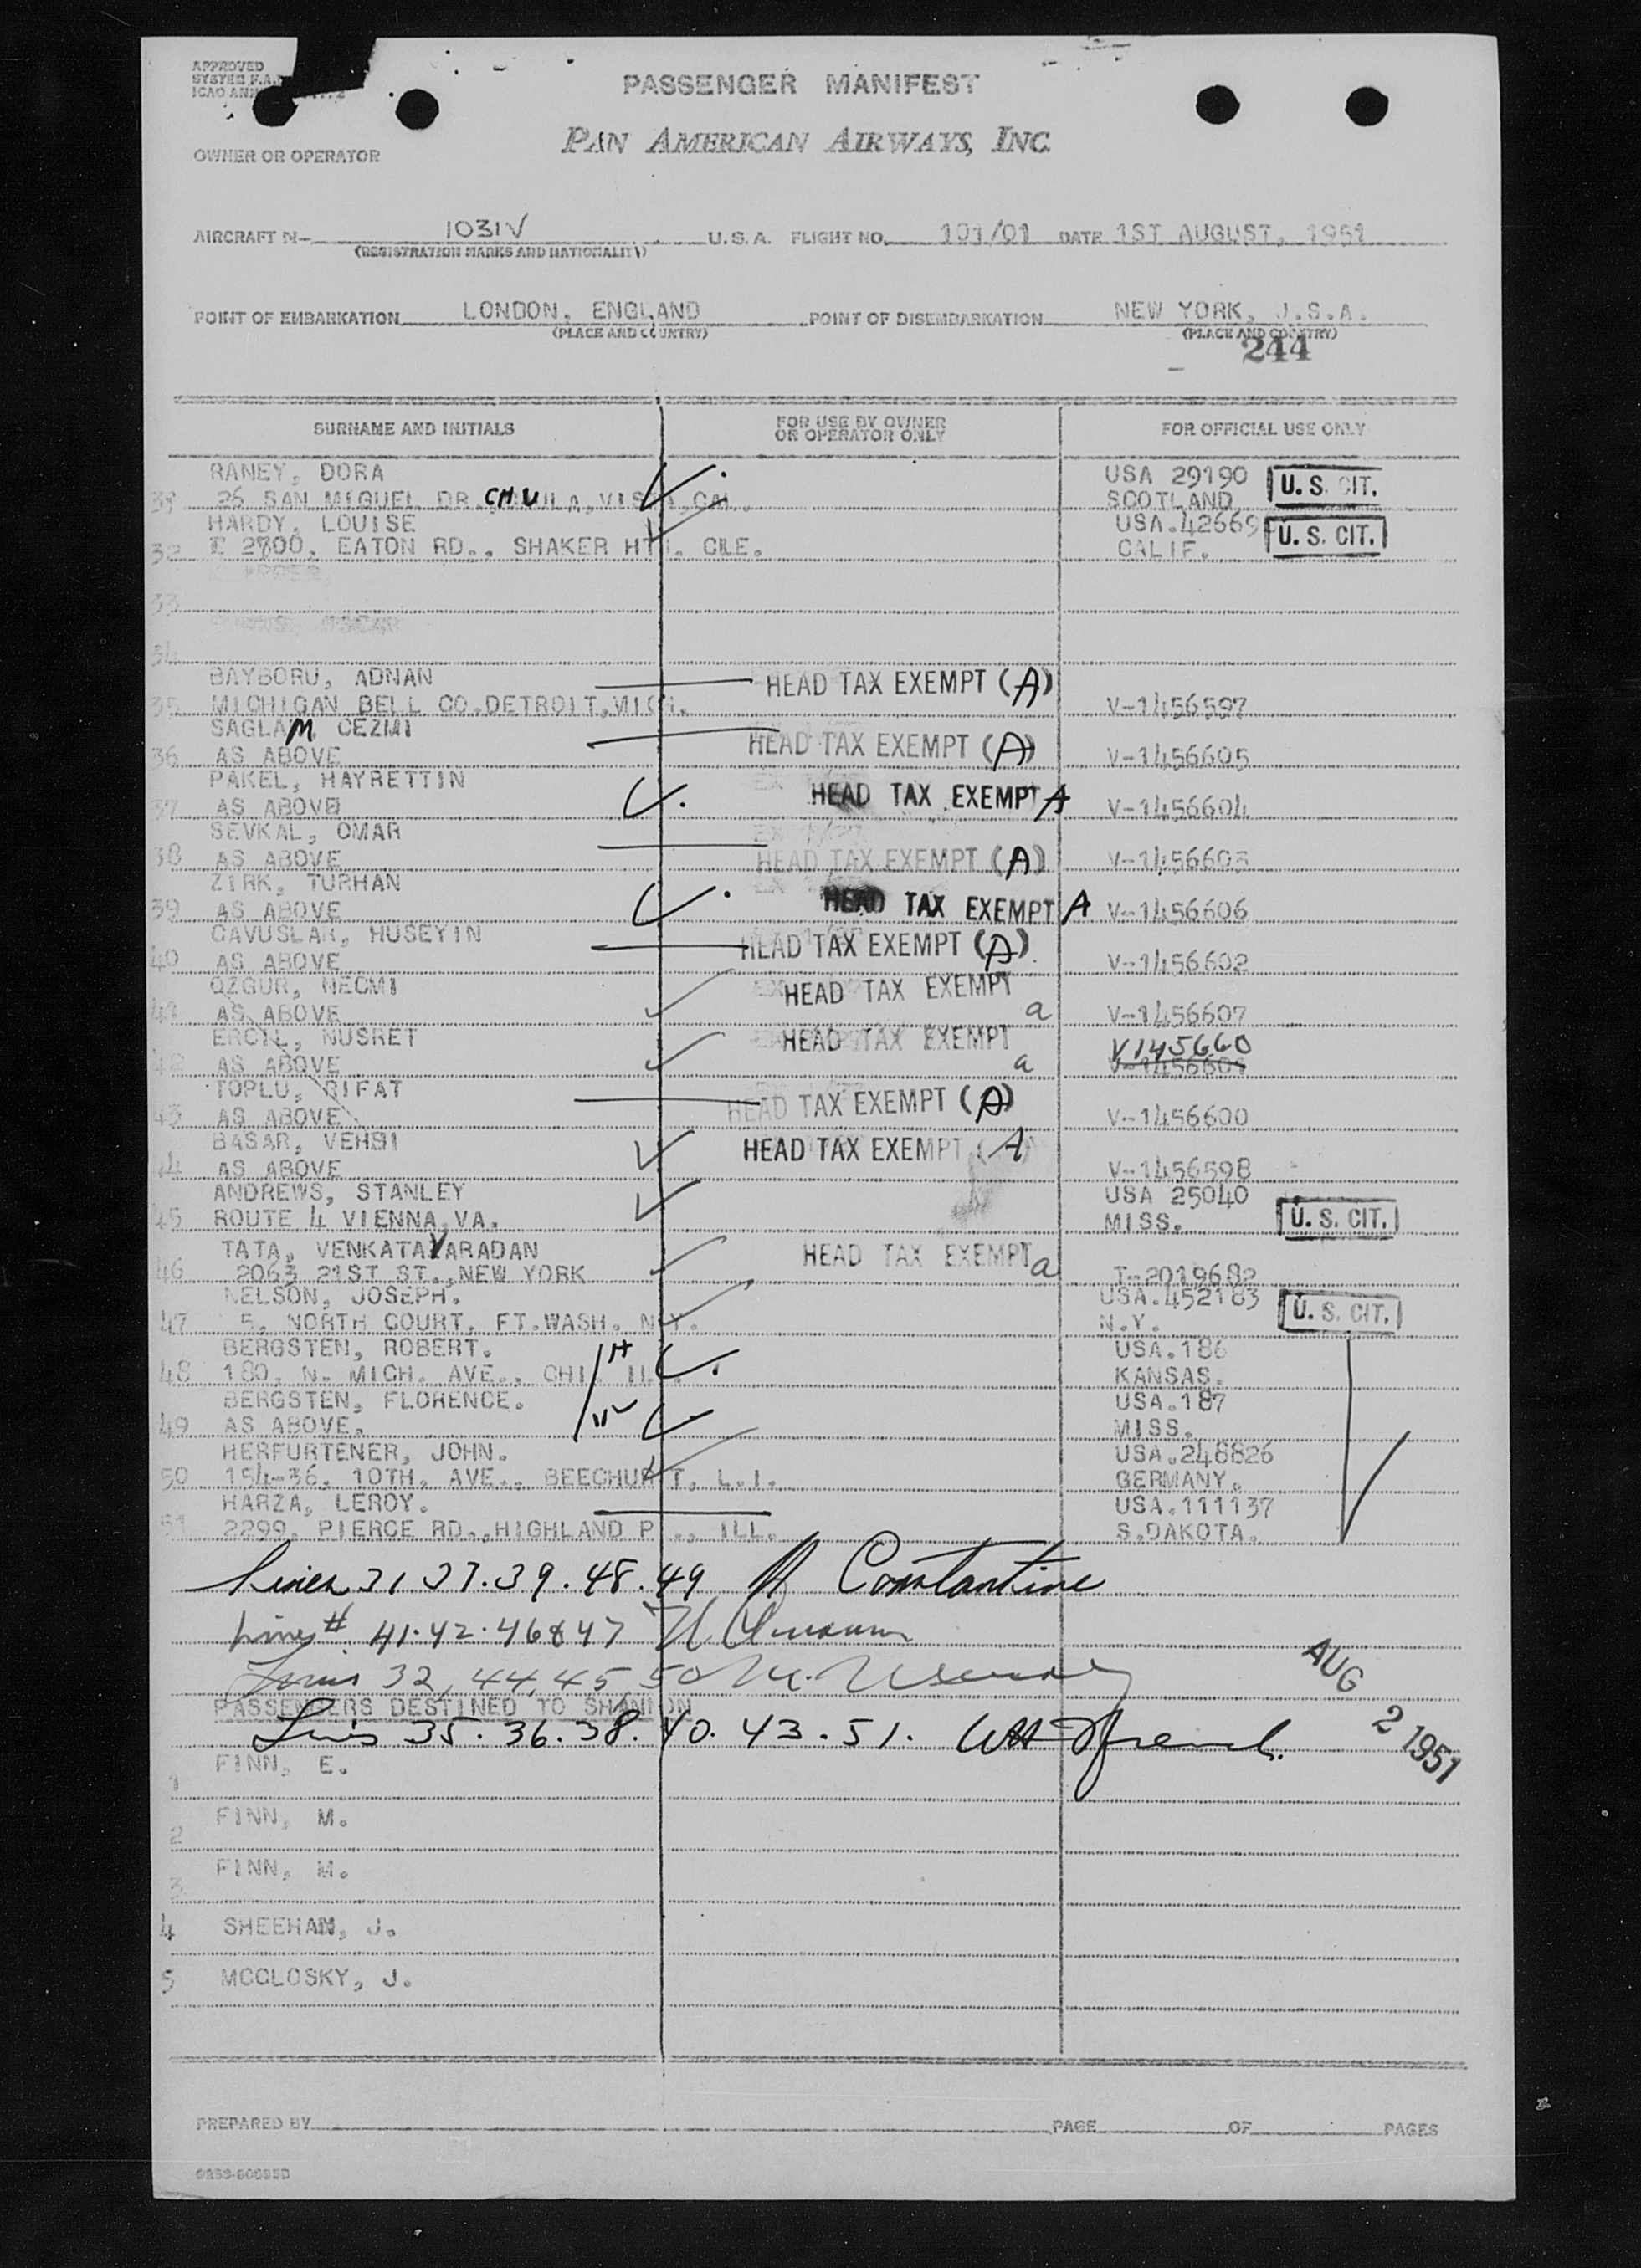 APPROVED
PASSENGER MANIFEST
PAN AMERICAN AIRWAYS, INC.
OWNER OR OPERATOR
AIRCRAFT N- 1031V U.S.A. FLIGHT NO. 101/01 DATE 1ST AUGUST, 1951
(REGISTRATION MARKS AND NATIONALITY)
POINT OF EMBARKATION LONDON, ENGLAND POINT OF DISEMBARKATION NEW YORK, U.S.A.
(PLACE AND COUNTRY) (PLACE AND COUNTRY)
244
SURNAME AND INITIALS FOR USE BY OWNER OR OPERATOR ONLY FOR OFFICIAL USE ONLY
RANEY, DORA USA 29190 U.S. CIT.
26 SAN MIGUEL DR. CHULA, VISTA, CAL. SCOTLAND
HARDY, LOUISE USA.42669 U.S. CIT.
32 2800, EATON RD., SHAKER HT. CLE. CALIF.
33
34
BAYBORU, ADNAN HEAD TAX EXEMPT (A)
35 MICHIGAN BELL CO.DETROIT,MICH. V-1456597
SAGLAM, CEZMI HEAD TAX EXEMPT (A)
36 AS ABOVE V-1456605
PAKEL, HAYRETTIN HEAD TAX EXEMPT A
37 AS ABOVE V-1456604
SEVKAL, OMAR
38 AS ABOVE HEAD TAX EXEMPT (A) V-1456603
ZIRK, TURHAN
39 AS ABOVE HEAD TAX EXEMPT A V-1456606
CAVUSLAR, HUSEYIN HEAD TAX EXEMPT (A)
40 AS ABOVE V-1456602
OZGUR, NECMI HEAD TAX EXEMPT
41 AS ABOVE a V-1456607
EROIL, NUSRET HEAD TAX EXEMPT V145660
42 AS ABOVE a V-1456601
TOPLU, RIFAT HEAD TAX EXEMPT (A)
43 AS ABOVE V-1456600
BASAR, VEHBI HEAD TAX EXEMPT (A)
44 AS ABOVE V-1456598
ANDREWS, STANLEY USA 25040
45 ROUTE 4 VIENNA, VA. MISS. U.S. CIT.
TATA, VENKATAVARADAN HEAD TAX EXEMPT a
46 2063 21ST ST., NEW YORK T-2019682
NELSON, JOSEPH. USA.452183 U.S. CIT.
47 5, NORTH COURT, FT.WASH. N.Y. N.Y.
BERGSTEN, ROBERT. USA.186
48 180, N. MICH. AVE., CHI. ILL. KANSAS.
BERGSTEN, FLORENCE. USA.187
49 AS ABOVE. MISS.
HERFURTENER, JOHN. USA.248826
50 154-36, 10TH, AVE., BEECHURST, L.I. GERMANY.
HARZA, LEROY. USA.111137
51 2299, PIERCE RD.,HIGHLAND P., ILL. S.DAKOTA.
Lines 31 37.39.48.49 Constantine
Lines # 41.42.46&47
Lines 32, 44, 45, 50
PASSENGERS DESTINED TO SHANNON
Lines 35.36.38.40.43.51.
AUG 2 1951
FINN, E.
1
FINN, M.
2
FINN, M.
3
4 SHEEHAN, J.
5 MCCLOSKY, J.
PREPARED BY PAGE OF PAGES